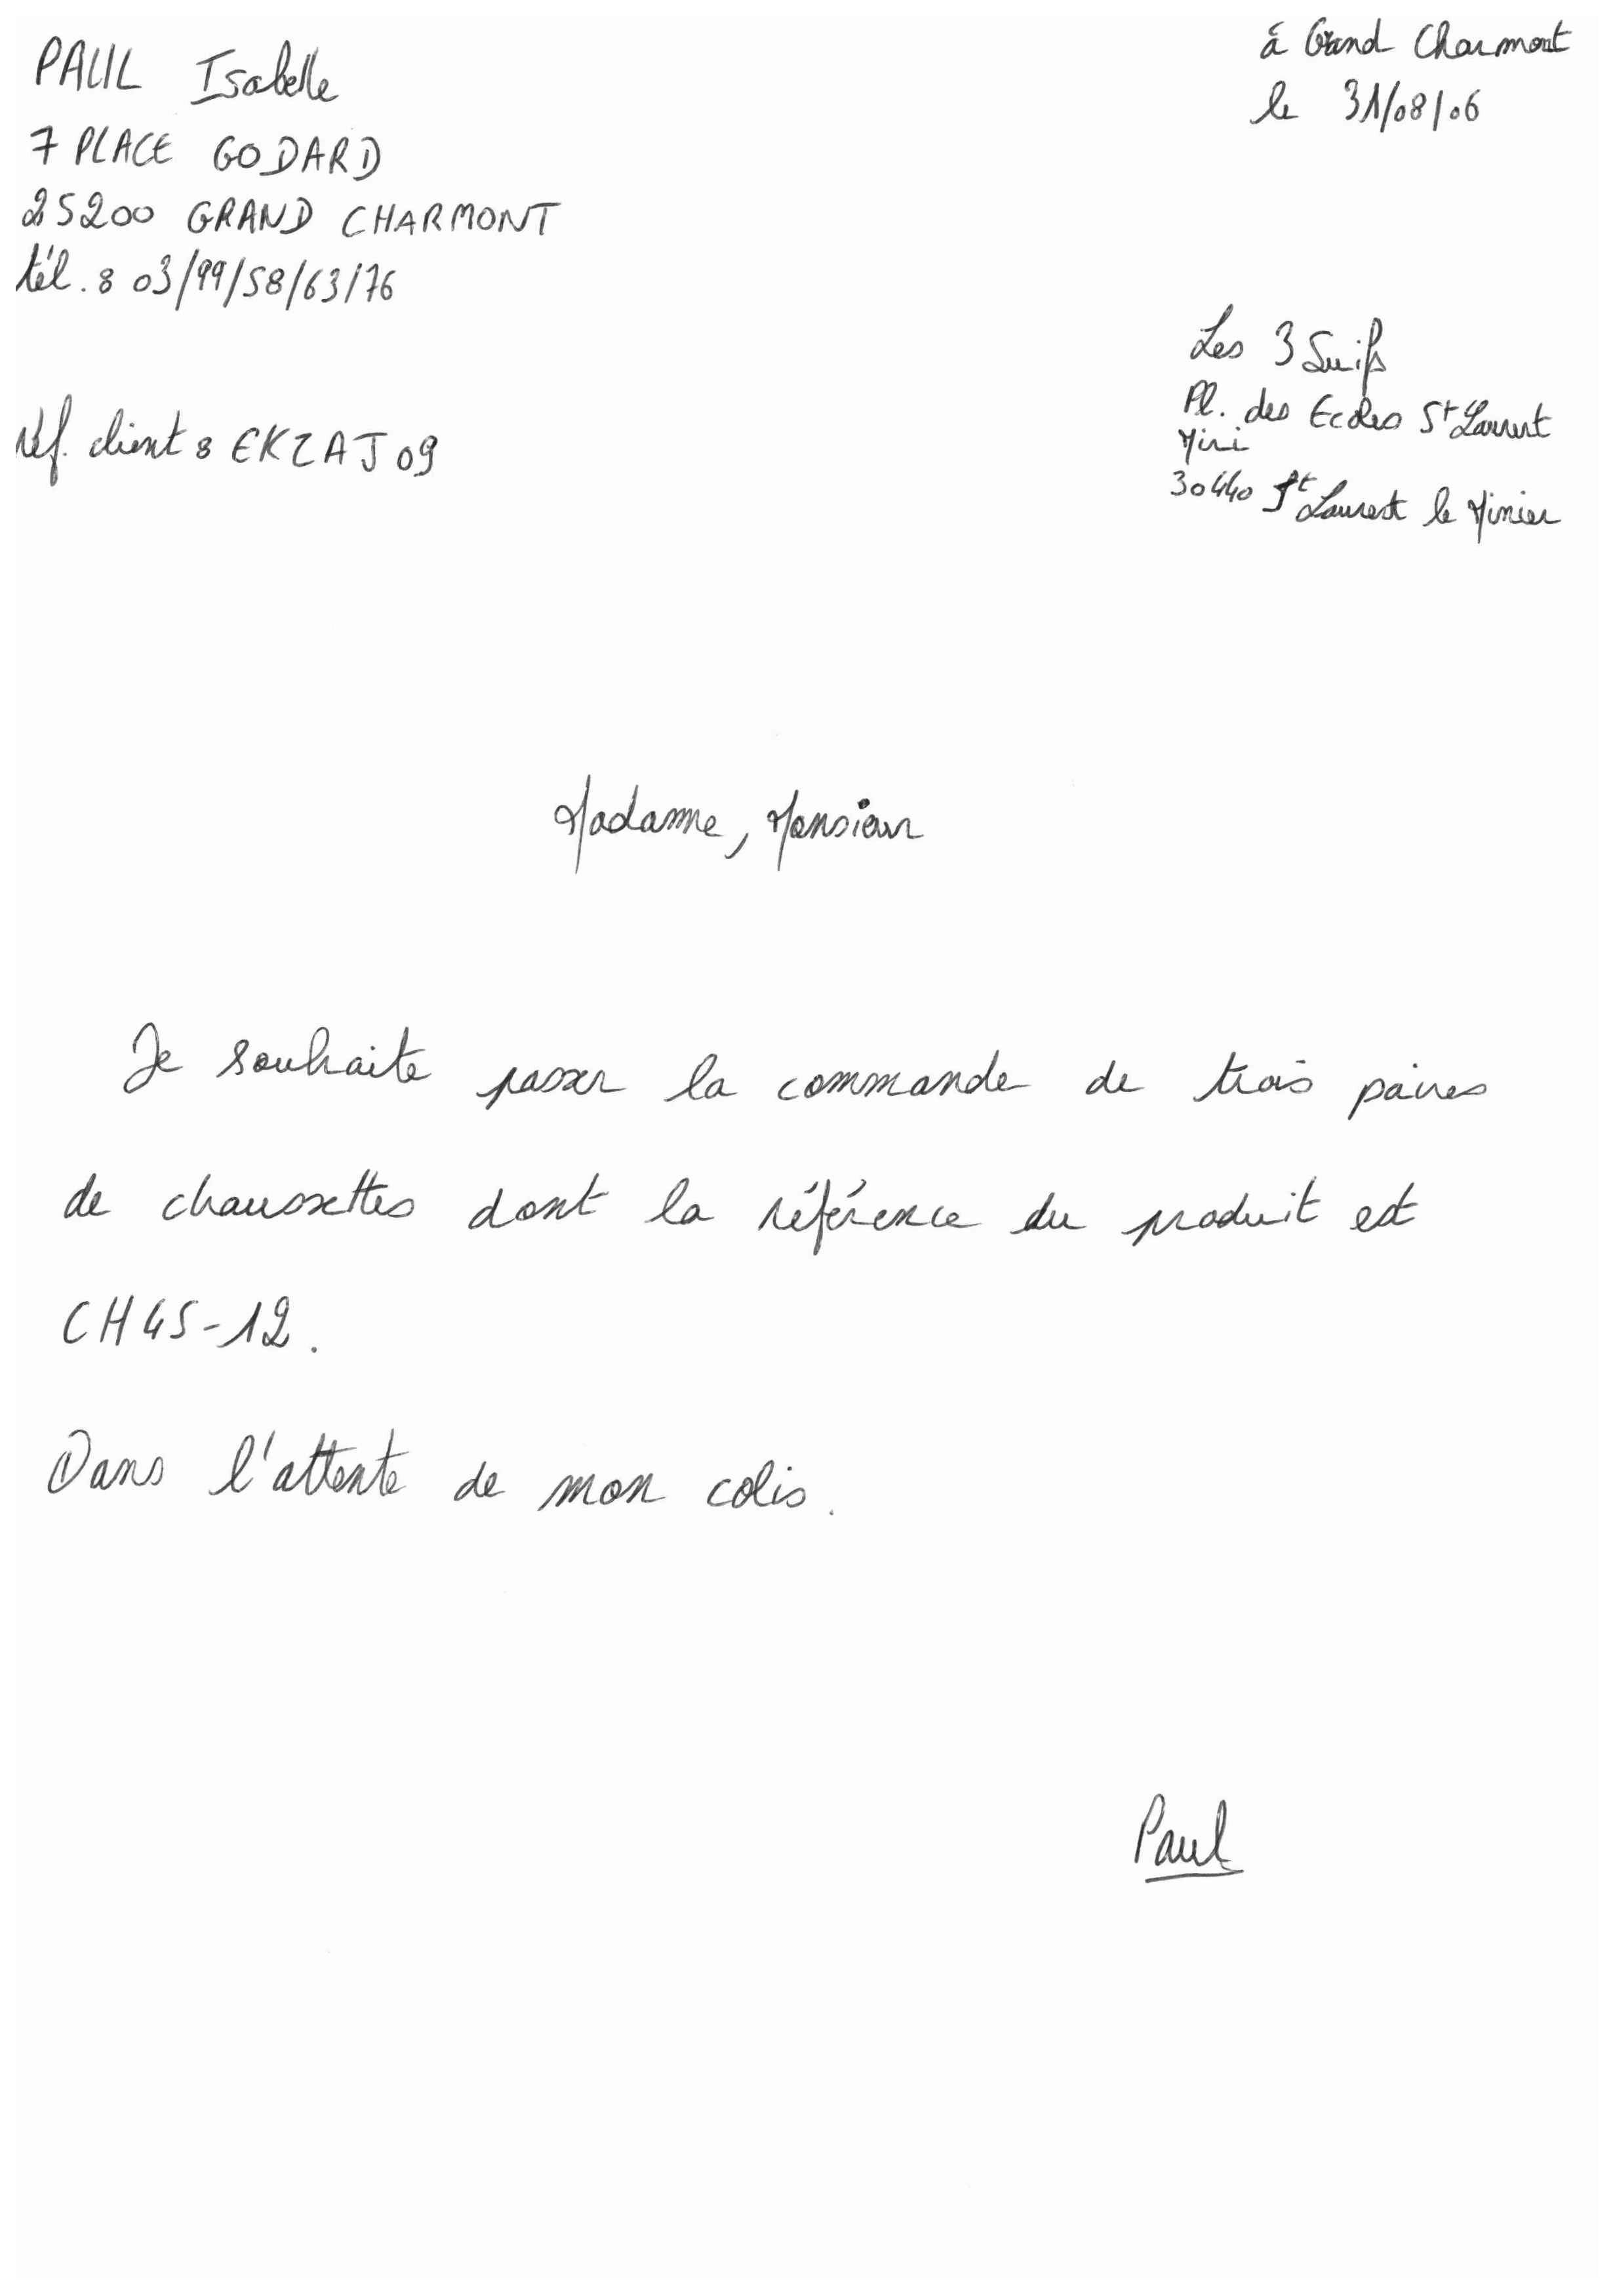 PAUL Isabelle
7 PLACE GODARD
25200 GRAND CHARMONT
tél. : 03/99/58/63/76
à Grand Charmont
le 31/08/06
Les 3 Suifs
Pl. des Ecoles St Laurent
Mini
30440 St Laurent le Minier
Réf. client : EKZAJ09
Madamme, Monsieur
Je souhaite passer la commande de trois paires
de chaussettes dont la référence du produit est
CH45-12.
Dans l'attente de mon colis.
Paul